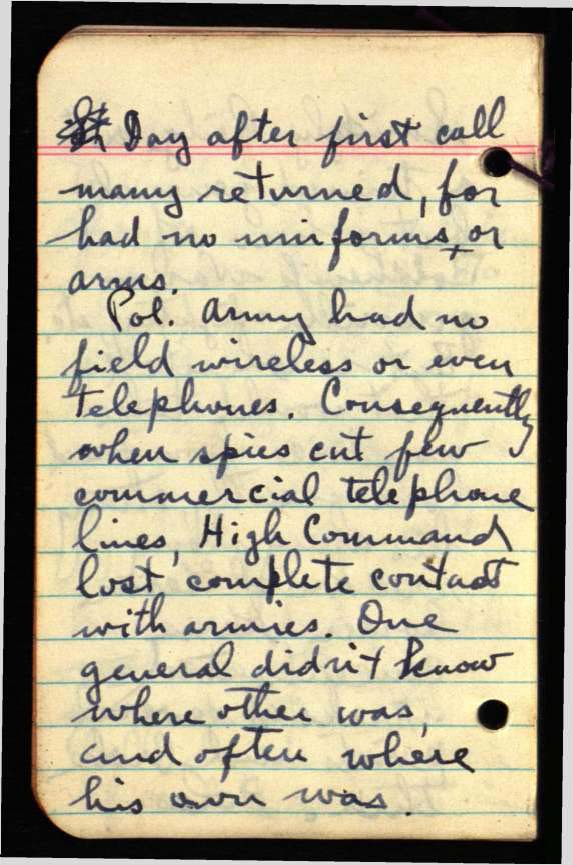 Day after first call
many returned, for
had no uniforms + or
arms.
Pol. Army had no
field wireless or even
telephones. Consequently
when spies cut few
commercial telephone
lines, High Command
lost complete contact
with armies. One
general didn't know
where other was,
and often where
his own was.